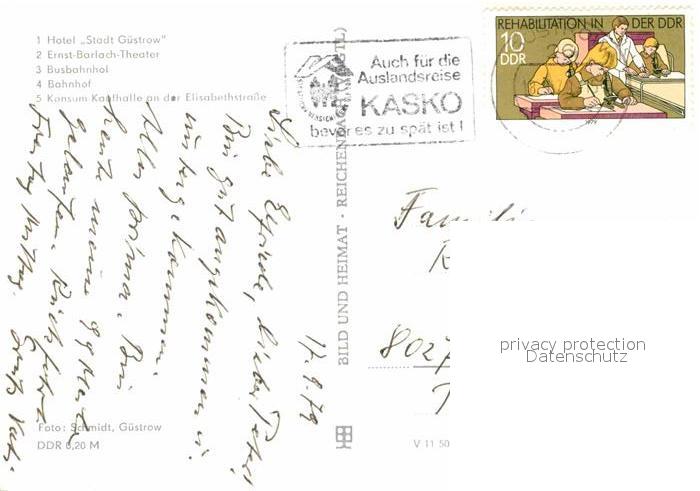 1 Hotel „Stadt Güstrow"
2 Ernst-Barlach-Theater
3 Busbahnhof
4 Bahnhof
5 Konsum Kaufhalle an der Elisabethstraße
Auch für die
Auslandsreise
KASKO
bevor es zu spät ist!
REHABILITATION IN DER DDR
10
DDR
1979
17.9.79
Liebe Elfriede, lieber Peter!
Bin gut angekommen u.
untergekommen.
Alles prima. Bin
heute meine
gelaufen. Rückfahrt
Freitag Mittag.
BILD UND HEIMAT · REICHENBACH (VOGTL)
Familie
8027
privacy protection
Datenschutz
Foto: Schmidt, Güstrow
DDR 0,20 M
V 11 50